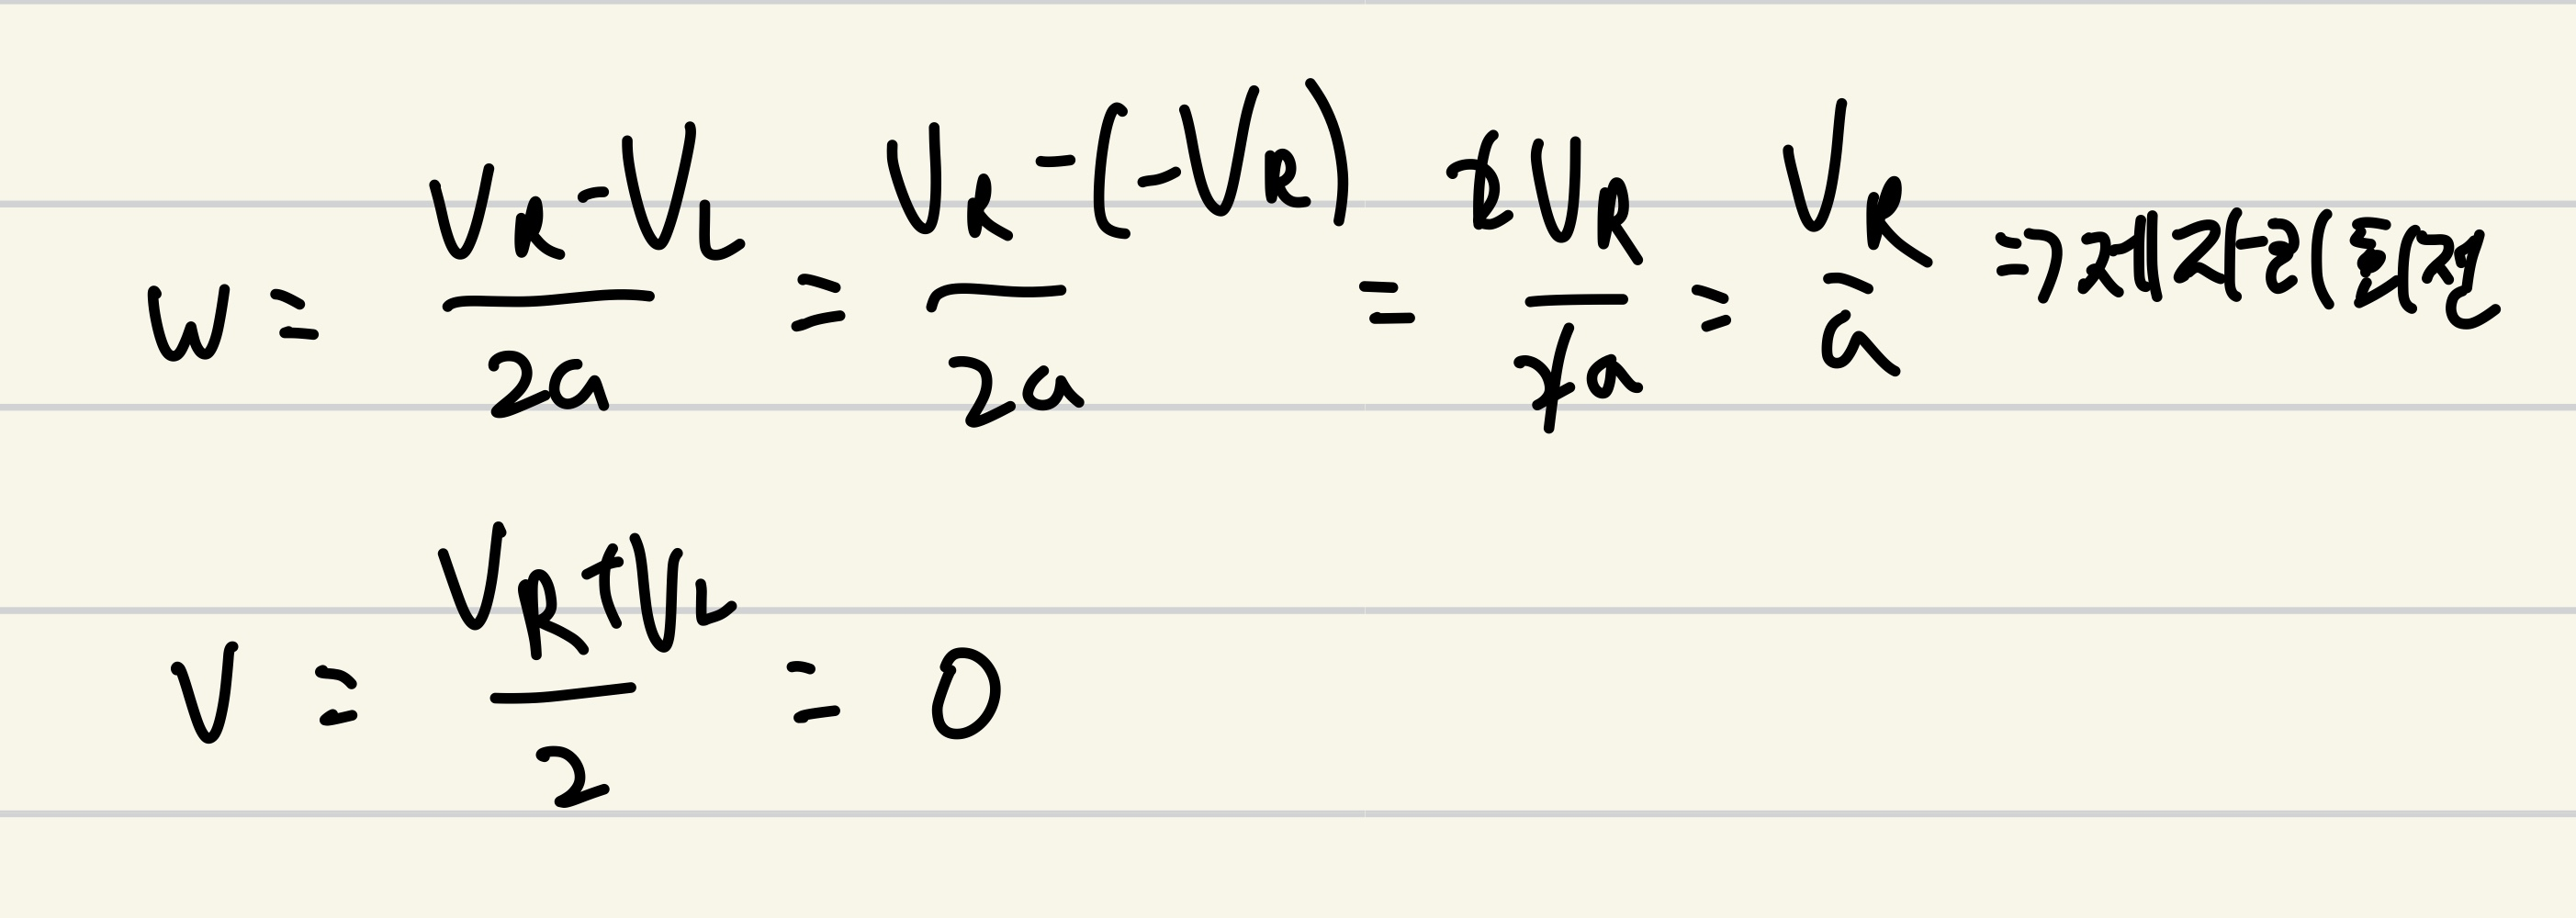 w = (V_R - V_L) / 2a = (V_R - (-V_R)) / 2a = 2V_R / 2a = V_R / a => 제자리
V = (V_R + V_L) / 2 = 0